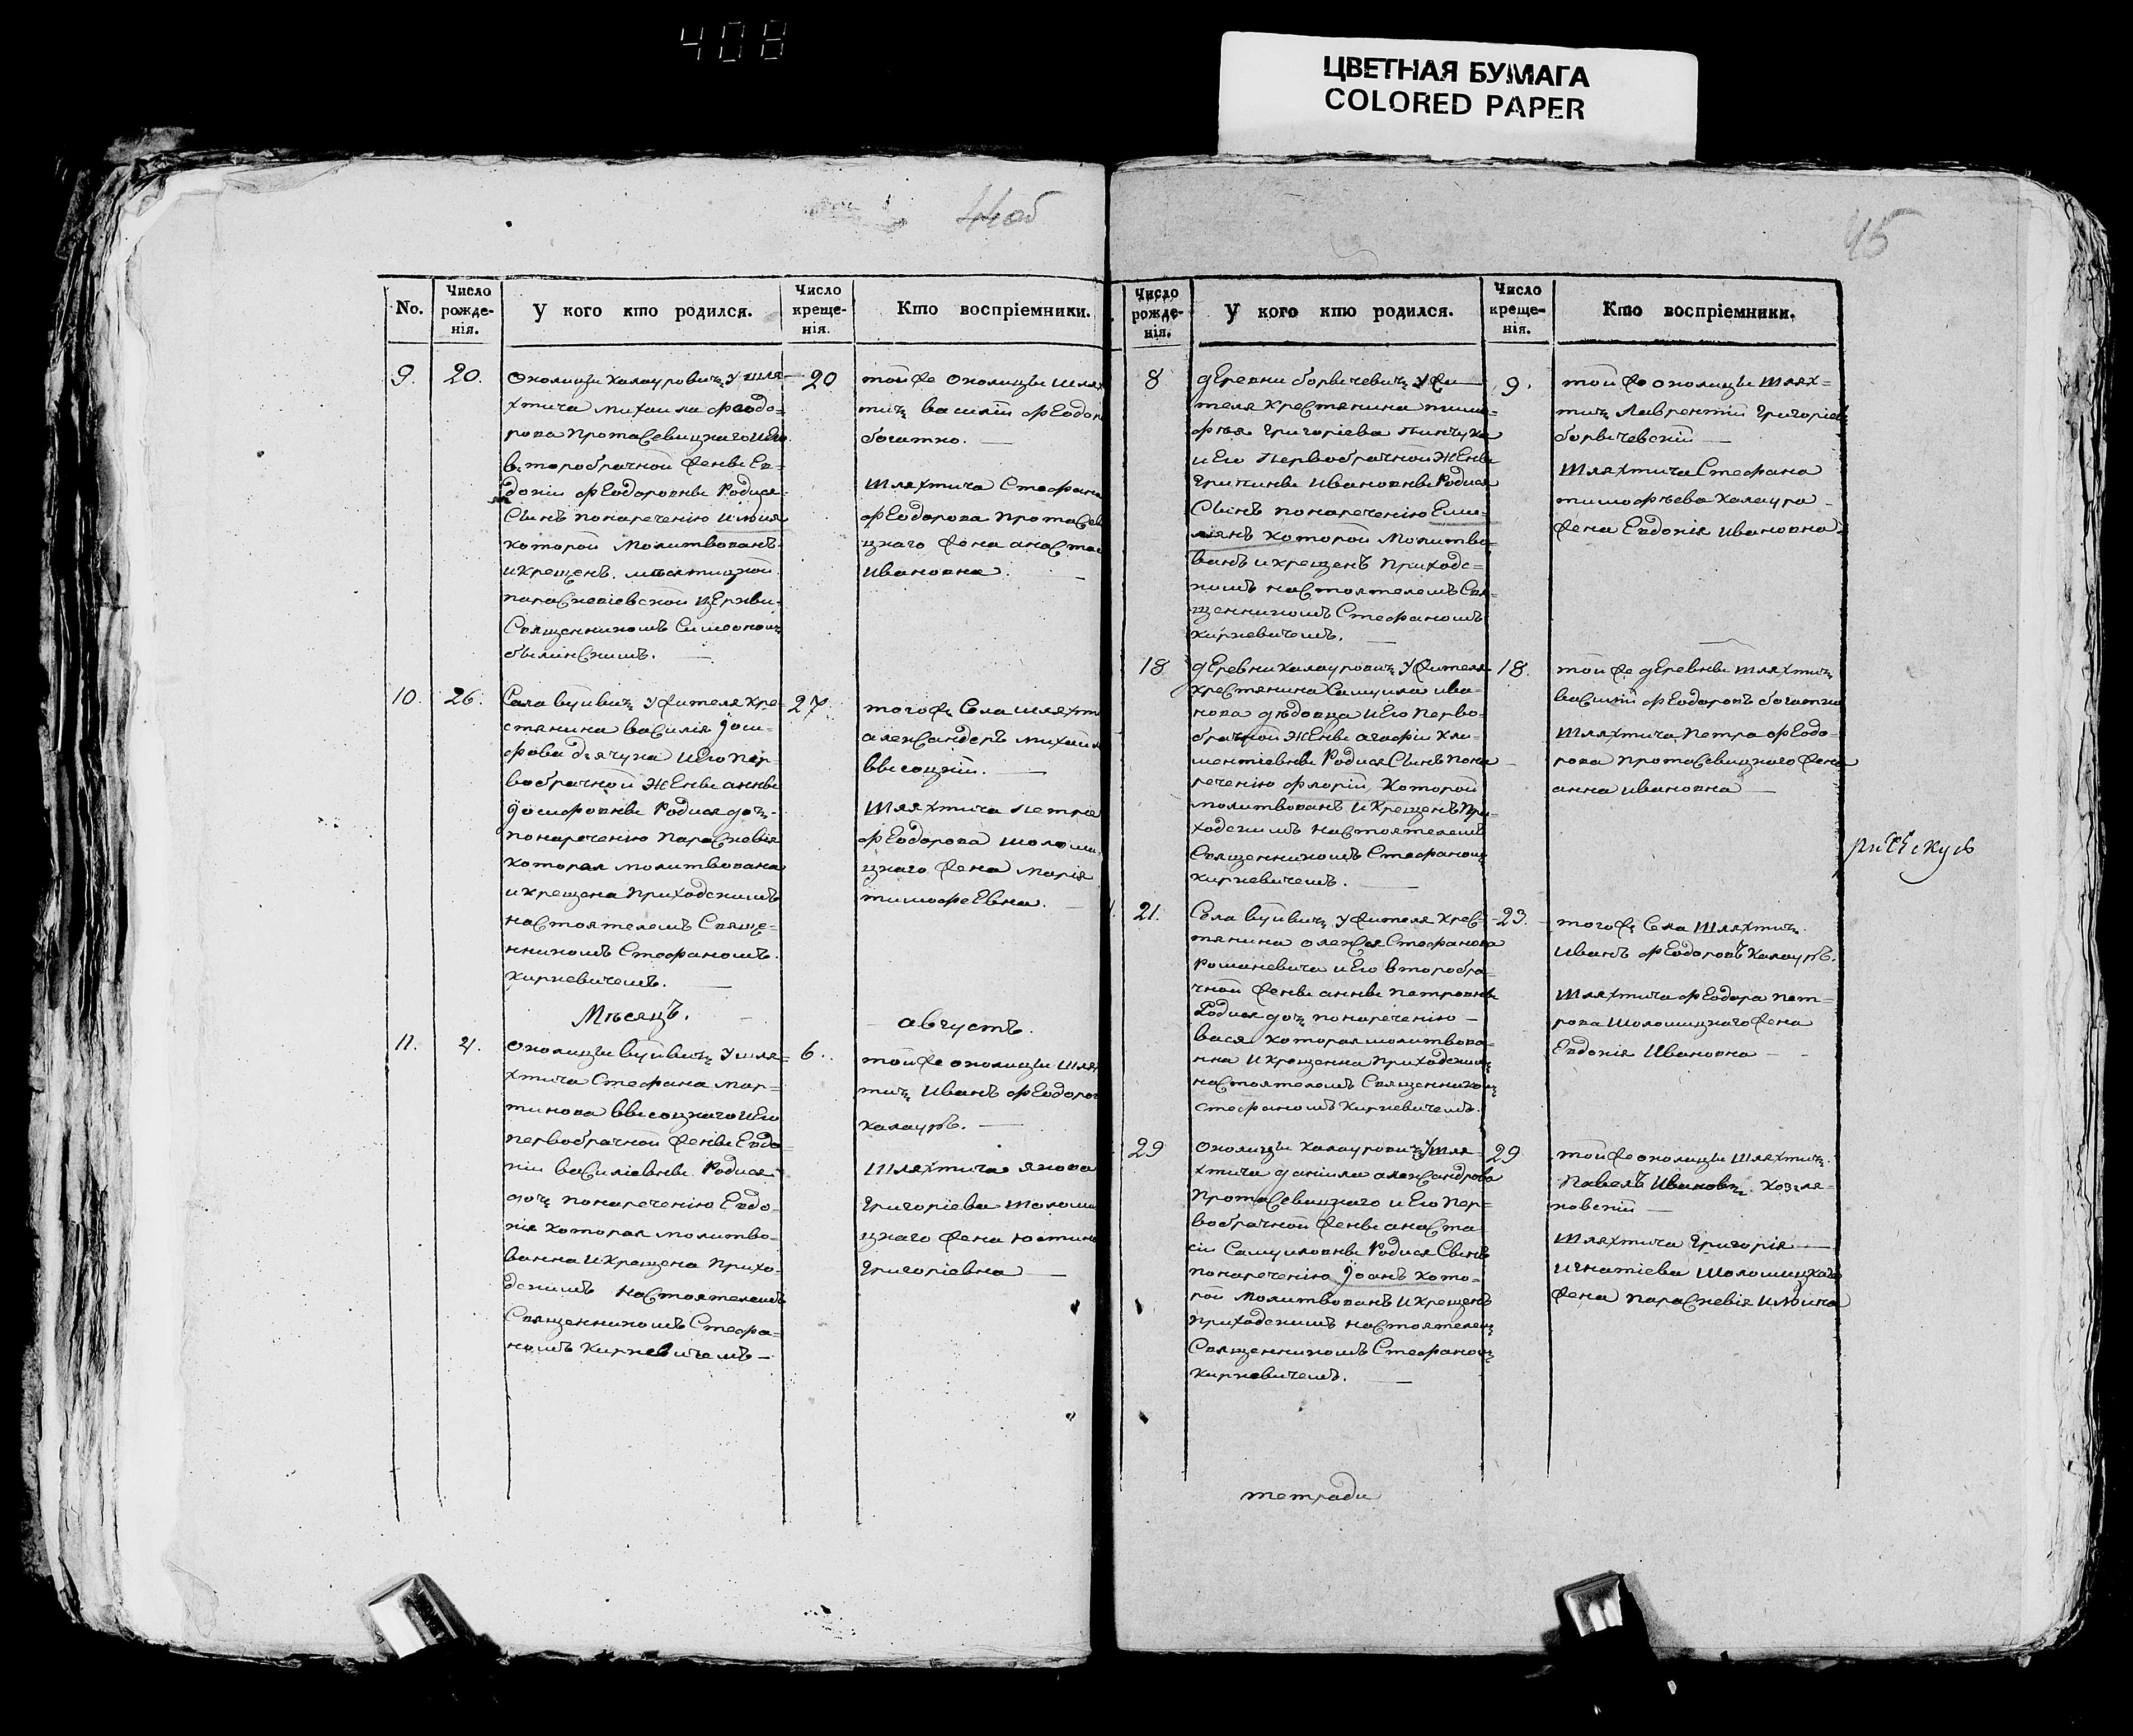 408
ЦВЕТНАЯ БУМАГА
COLORED PAPER
44об
45
No.
Число рожде-нія.
У кого кто родился.
Число креще-нія.
Кто воспріемники.
9. 20. Околицы Калауровичъ у шля-
хтича Михаила Феодо-
рова Протасевицкаго и его
второбрачной жены Ев-
докіи Феодоровны родися
сынъ по нареченію Илия
которой молитвованъ
и крещенъ
параскевіевской церкви
священникомъ Симеономъ
20
той же околицы шлях
тичъ Василій Феодор
богатко.
шляхтича Стефана
Феодорова Протасев
цкаго жена Анастас
Ивановна.
10. 26. Села Вуйвичъ у жителя кре-
стянина Василія Іоси-
фова Дячука и его пер-
вобрачной жены Анны
Іосифовны родися дочь
по нареченію Параскевія
которая молитвована
и крещена приходскимъ
настоятелемъ свяще-
нникомъ Стефаномъ
Киркевичемъ.
27.
того же села шляхти
александеръ Михайл
Высоцкій.
шляхтича Петра
Феодорова Шоломи
цкаго жена Марія
тимофеевна.
Мѣсяцъ.
августъ.
11. 4. Околицы Вуйвичъ у шля-
хтича Стефана Мар-
тинова Высоцкаго и его
первобрачной жены Евдо-
кіи Василіевны родися
дочь по нареченію Евдо-
кія которая молитво-
ванна и крещена прихо-
дскимъ настоятелемъ
священникомъ Стефа-
номъ Киркевичемъ
6.
той же околицы шлях
тичъ Иванъ Феодоров
Калауръ.
шляхтича Якова
Григоріева Шоломи
цкаго жена Юстина
Григоріевна
Число рожде-нія.
У кого кто родился.
Число креще-нія.
Кто воспріемники.
8 деревни Борвичевичъ у жи-
теля крестянина тимо-
фея Григоріева Пинчука
и его первобрачной жены
Грипины Ивановны родися
сынъ по нареченію Еми-
лиянъ которой молитво-
ванъ и крещенъ приходс-
кимъ настоятелемъ свя-
щенникомъ Стефаномъ
Киркевичемъ.
9.
той же околицы шлях-
тичъ Лаврентій Григоріев
Борвичевскій
шляхтича Стефана
тимофѣева Калаура
жена Евдокія Ивановна
18 деревни Калауровичъ у жителя
крестянина Самуила Ива-
нова Дѣдовца и его перво-
брачной жены Агафіи Кли-
ментіевны родися сынъ по на
реченію Флорій которой
молитвованъ и крещенъ при-
ходскимъ настоятелемъ
священникомъ Стефаномъ
Киркевичемъ.
18.
той же деревны шляхтичъ
Василій Феодоровъ богатко
шляхтича Петра Феодо-
рова Протасевицкаго жена
анна Ивановна
21. Села Вуйвичъ у жителя крес-
тянина Олексея Стефанова
Романевича и его второбра-
чной жены Анны Петровны
Родися дочь по нареченію
Васса которая молитвова-
нна и крещенна приходскимъ
настоятелемъ священникомъ
Стефаномъ Киркевичемъ.
23.
того же села шляхтичъ
Иванъ Феодоровъ Калауръ.
шляхтича Феодора Пет-
рова Шоломицкаго жена
Евдокія Ивановна
29 Околицы Калауровичъ у шля-
хтича Даніила александрова
Протасевицкаго и его пер-
вобрачной жены Анаста-
сіи Самуиловны родися сынъ
по нареченію Іоанъ кото-
рой молитвованъ и крещенъ
приходскимъ настоятелемъ
священникомъ Стефаномъ
Киркевичемъ.
29
той же околицы шляхтичъ
Павелъ Ивановъ Козля-
ковскій
шляхтича Григорія
Игнатіева Шоломицкаго
жена Параскевія Илина
тетради